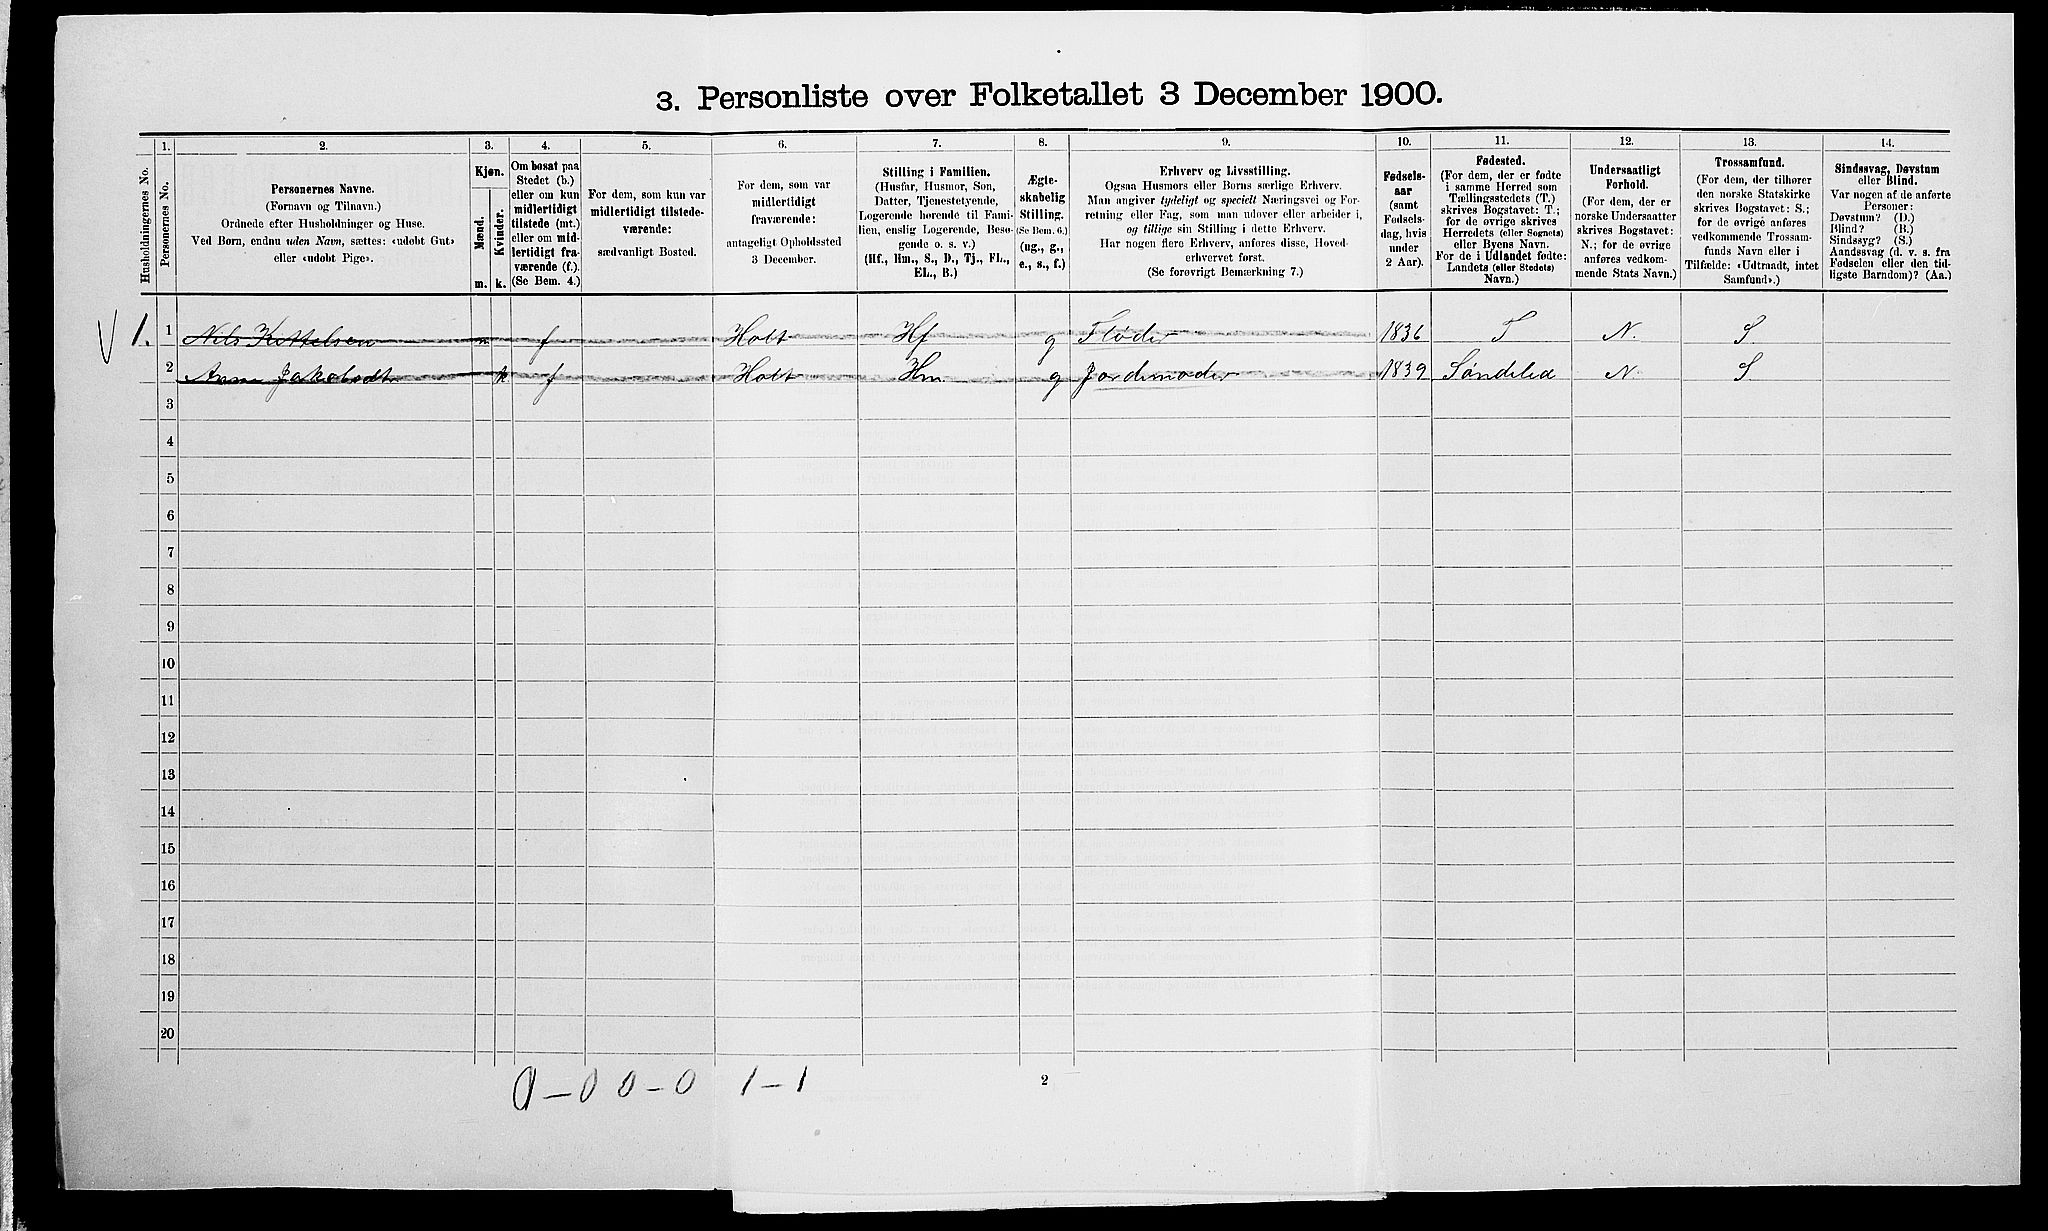 3. Personliste over Folketallet 3 December 1900.
Husholdningernes No.
1.
Personernes No.
2.
Personernes Navne.
(Fornavn og Tilnavn.)
Ordnede efter Husholdninger og Huse.
Ved Børn, endnu uden Navn, sættes: «udøbt Gut»
eller «udøbt Pige».
3.
Kjøn.
Mænd.
Kvinder.
m. k.
4.
Om bosat paa
Stedet (b.)
eller om kun
midlertidigt
tilstede (mt.)
eller om mid-
lertidigt fra-
værende (f.).
(Se Bem. 4.)
5.
For dem, som kun var
midlertidigt tilstede-
værende:
sædvanligt Bosted.
6.
For dem, som var
midlertidigt
fraværende:
antageligt Opholdssted
3 December.
7.
Stilling i Familien.
(Husfar, Husmor, Søn,
Datter, Tjenestetyende,
Logerende hørende til Fami-
lien, enslig Logerende, Besø-
gende o. s. v.)
(Hf., Hm., S., D., Tj., FL.,
EL., B.)
8.
Ægte-
skabelig
Stilling.
(Se Bem. 6.)
(ug., g.,
e., s., f.)
9.
Erhverv og Livsstilling.
Ogsaa Husmors eller Børns særlige Erhverv.
Man angiver tydeligt og specielt Næringsvei og For-
retning eller Fag, som man udøver eller arbeider i,
og tillige sin Stilling i dette Erhverv.
Har nogen flere Erhverv, anføres disse, Hoved-
erhvervet først.
(Se forøvrigt Bemærkning 7.)
10.
Fødsels-
aar
(samt
Fødsels-
dag, hvis
under
2 Aar).
11.
Fødested.
(For dem, der er fødte
i samme Herred som
Tællingsstedets (T.)
skrives Bogstavet: T.;
for de øvrige skrives
Herredets (eller Sognets)
eller Byens Navn.
For de i Udlandet fødte:
Landets (eller Stedets)
Navn.)
12.
Undersaatligt
Forhold.
(For dem, der er
norske Undersaatter
skrives Bogstavet:
N.; for de øvrige
anføres vedkom-
mende Stats Navn.)
13.
Trossamfund.
(For dem, der tilhører
den norske Statskirke
skrives Bogstavet: S.;
for de øvrige anføres
vedkommende Trossam-
funds Navn eller i
Tilfælde: «Udtraadt, intet
Samfund».)
14.
Sindssvag, Døvstum
eller Blind.
Var nogen af de anførte
Personer:
Døvstum? (D.)
Blind? (B.)
Sindssyg? (S.)
Aandssvag (d. v. s. fra
Fødselen eller den tid-
ligste Barndom)? (Aa.)
V 1. 1 Nils Kittelsen m f Holt Hf g Fløder 1836 T N. S.
2 Anne Jakobsdt. k f Holt Hm g Jordemoder 1839 Søndeled N. S
3
4
5
6
7
8
9
10
11
12
13
14
15
16
17
18
19
20
0 – 0 0 – 0 1 – 1
2